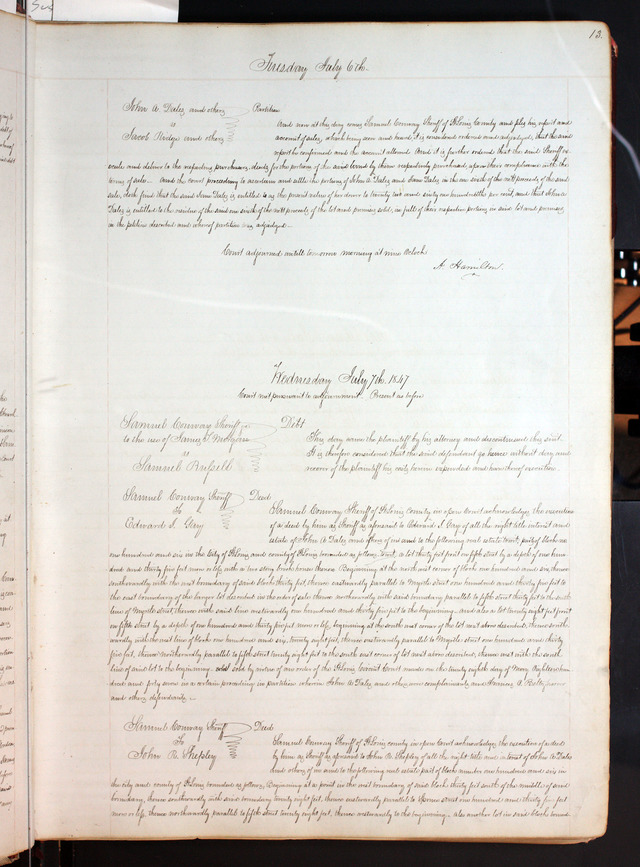 13.
Tuesday July 6th.
John A. Daley and others Partition
vs And now at this day comes Samuel Conway Sheriff of St Louis County and files his report and
Jacob and others account of sales, which being seen and heard it is considered ordered and adjudged, that the said
report be confirmed and the account allowed. And it is further ordered that the said Sheriff ex-
ecute and deliver to the respective purchasers, deeds for the portions of the said by them respectively purchased, upon their compliance with the
terms of sale. And the court proceeding to ascertain and settle the portions of John A Daley and Daley in the one sixth of the nett proceeds of the said
sales, doth find that the said Daley is entitled to as the present value of her dower to twenty two and sixty one hundredths per cent, and that John A
Daley is entitled to the residue of the said one sixth of the nett proceeds of the lot and premises sold, in full of their respective portions in said lot and premises
in the petition described and whereof partition was adjudged.
Court adjourned untill tomorrow morning at nine Oclock
A. Hamilton
Wednesday July 7th. 1847
Court met pursuant to adjournment. Present as before
Samuel Conway Sheriff Debt
to the use of James This day came the plaintiff by his attorney and discontinued this suit.
vs It is therefore considered that the said defendant go hence without day and
Samuel Russell recover of the plaintiff his costs herein expended and have thereof execution.
Samuel Conway Sheriff Deed
To Samuel Conway Sheriff of St Louis County in open Court acknowledges the execution
Edward J. Gay of a deed by him as Sheriff as aforesaid to Edward J. Gay of all the right title interest and
estate of John A Daley and others of in and to the following real estate to wit, part of block no
one hundred and six in the City of St Louis and county of St Louis bounded as follows, to wit, a lot thirty feet front on fifth street by a depth of one hun-
dred and thirty five feet more or less with a two story brick house thereon. Beginning at the north east corner of block one hundred and six, thence
southwardly with the east boundary of said block thirty feet, thence eastwardly parallel to Myrtle street one hundred and thirty five feet to
the east boundary of the larger lot described in the order of sale thence northwardly with said boundary parallel to fifth street thirty feet to the south
line of Myrtle street, thence with said line westwardly one hundred and thirty five feet to the beginning. And also a lot twenty eight feet front
on fifth street by a depth of one hundred and thirty five feet more or less, beginning at the south east corner of the lot next above described, thence south-
wardly with the east line of block one hundred and six, twenty eight feet, thence eastwardly parallel to Myrtle street one hundred and thirty
five feet, thence northwardly parallel to fifth street twenty eight feet to the south east corner of lot next above described, thence west with the south
line of said lot to the beginning. sold by virtue of an order of the St Louis Circuit Court made on the twenty eighth day of May Eighteen hun-
dred and forty seven in a certain proceeding in partition wherein John A Daley and others were complainants and
and others defendants.
Samuel Conway Sheriff Deed
To Samuel Conway Sheriff of St Louis county in open Court acknowledges the execution of a deed
John R. Shepley by him as Sheriff as aforesaid to John R. Shepley of all the right title and interest of John A Daley
and others of in and to the following real estate part of block number one hundred and six in
the City and county of St Louis bounded as follows, Beginning at a point in the east boundary of said block thirty feet south of the middle of said
boundary, thence southwardly with said boundary twenty feet, thence eastwardly parallel to street one hundred and thirty five feet
more or less, thence northwardly parallel to fifth street twenty feet, thence westwardly to the beginning. also another lot in said block bound-